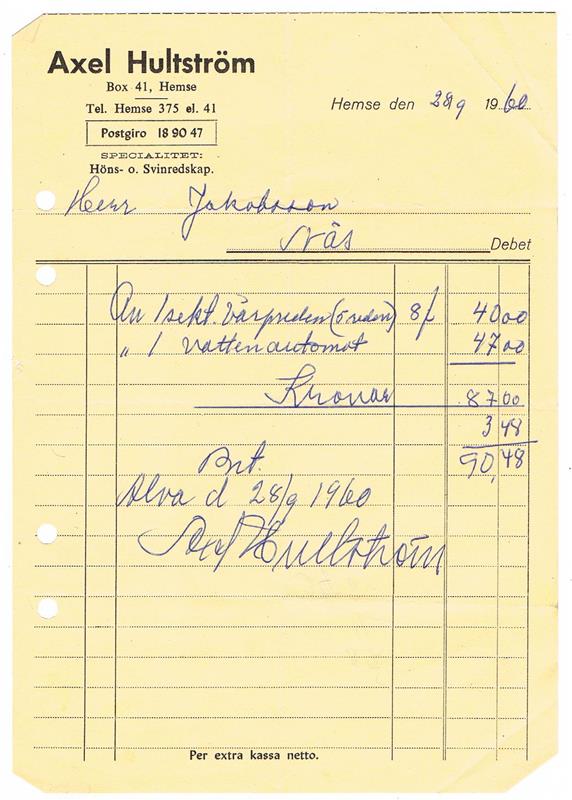 Axel Hultström
Box 41, Hemse
Tel. Hemse 375 el. 41
Postgiro 18 90 47
SPECIALITET:
Höns- o. Svinredskap.
Hemse den 28/9 1960
Herr Jakobsson
Näs
Debet
An 1 sekt. Värpreden (5 reden) 8/ 40 00
„ 1 Vattenautomat 47 00
Kronor 87 00
3 48
90,48
Brt.
Alva d 28/9 1960
Axel Hultström
Per extra kassa netto.